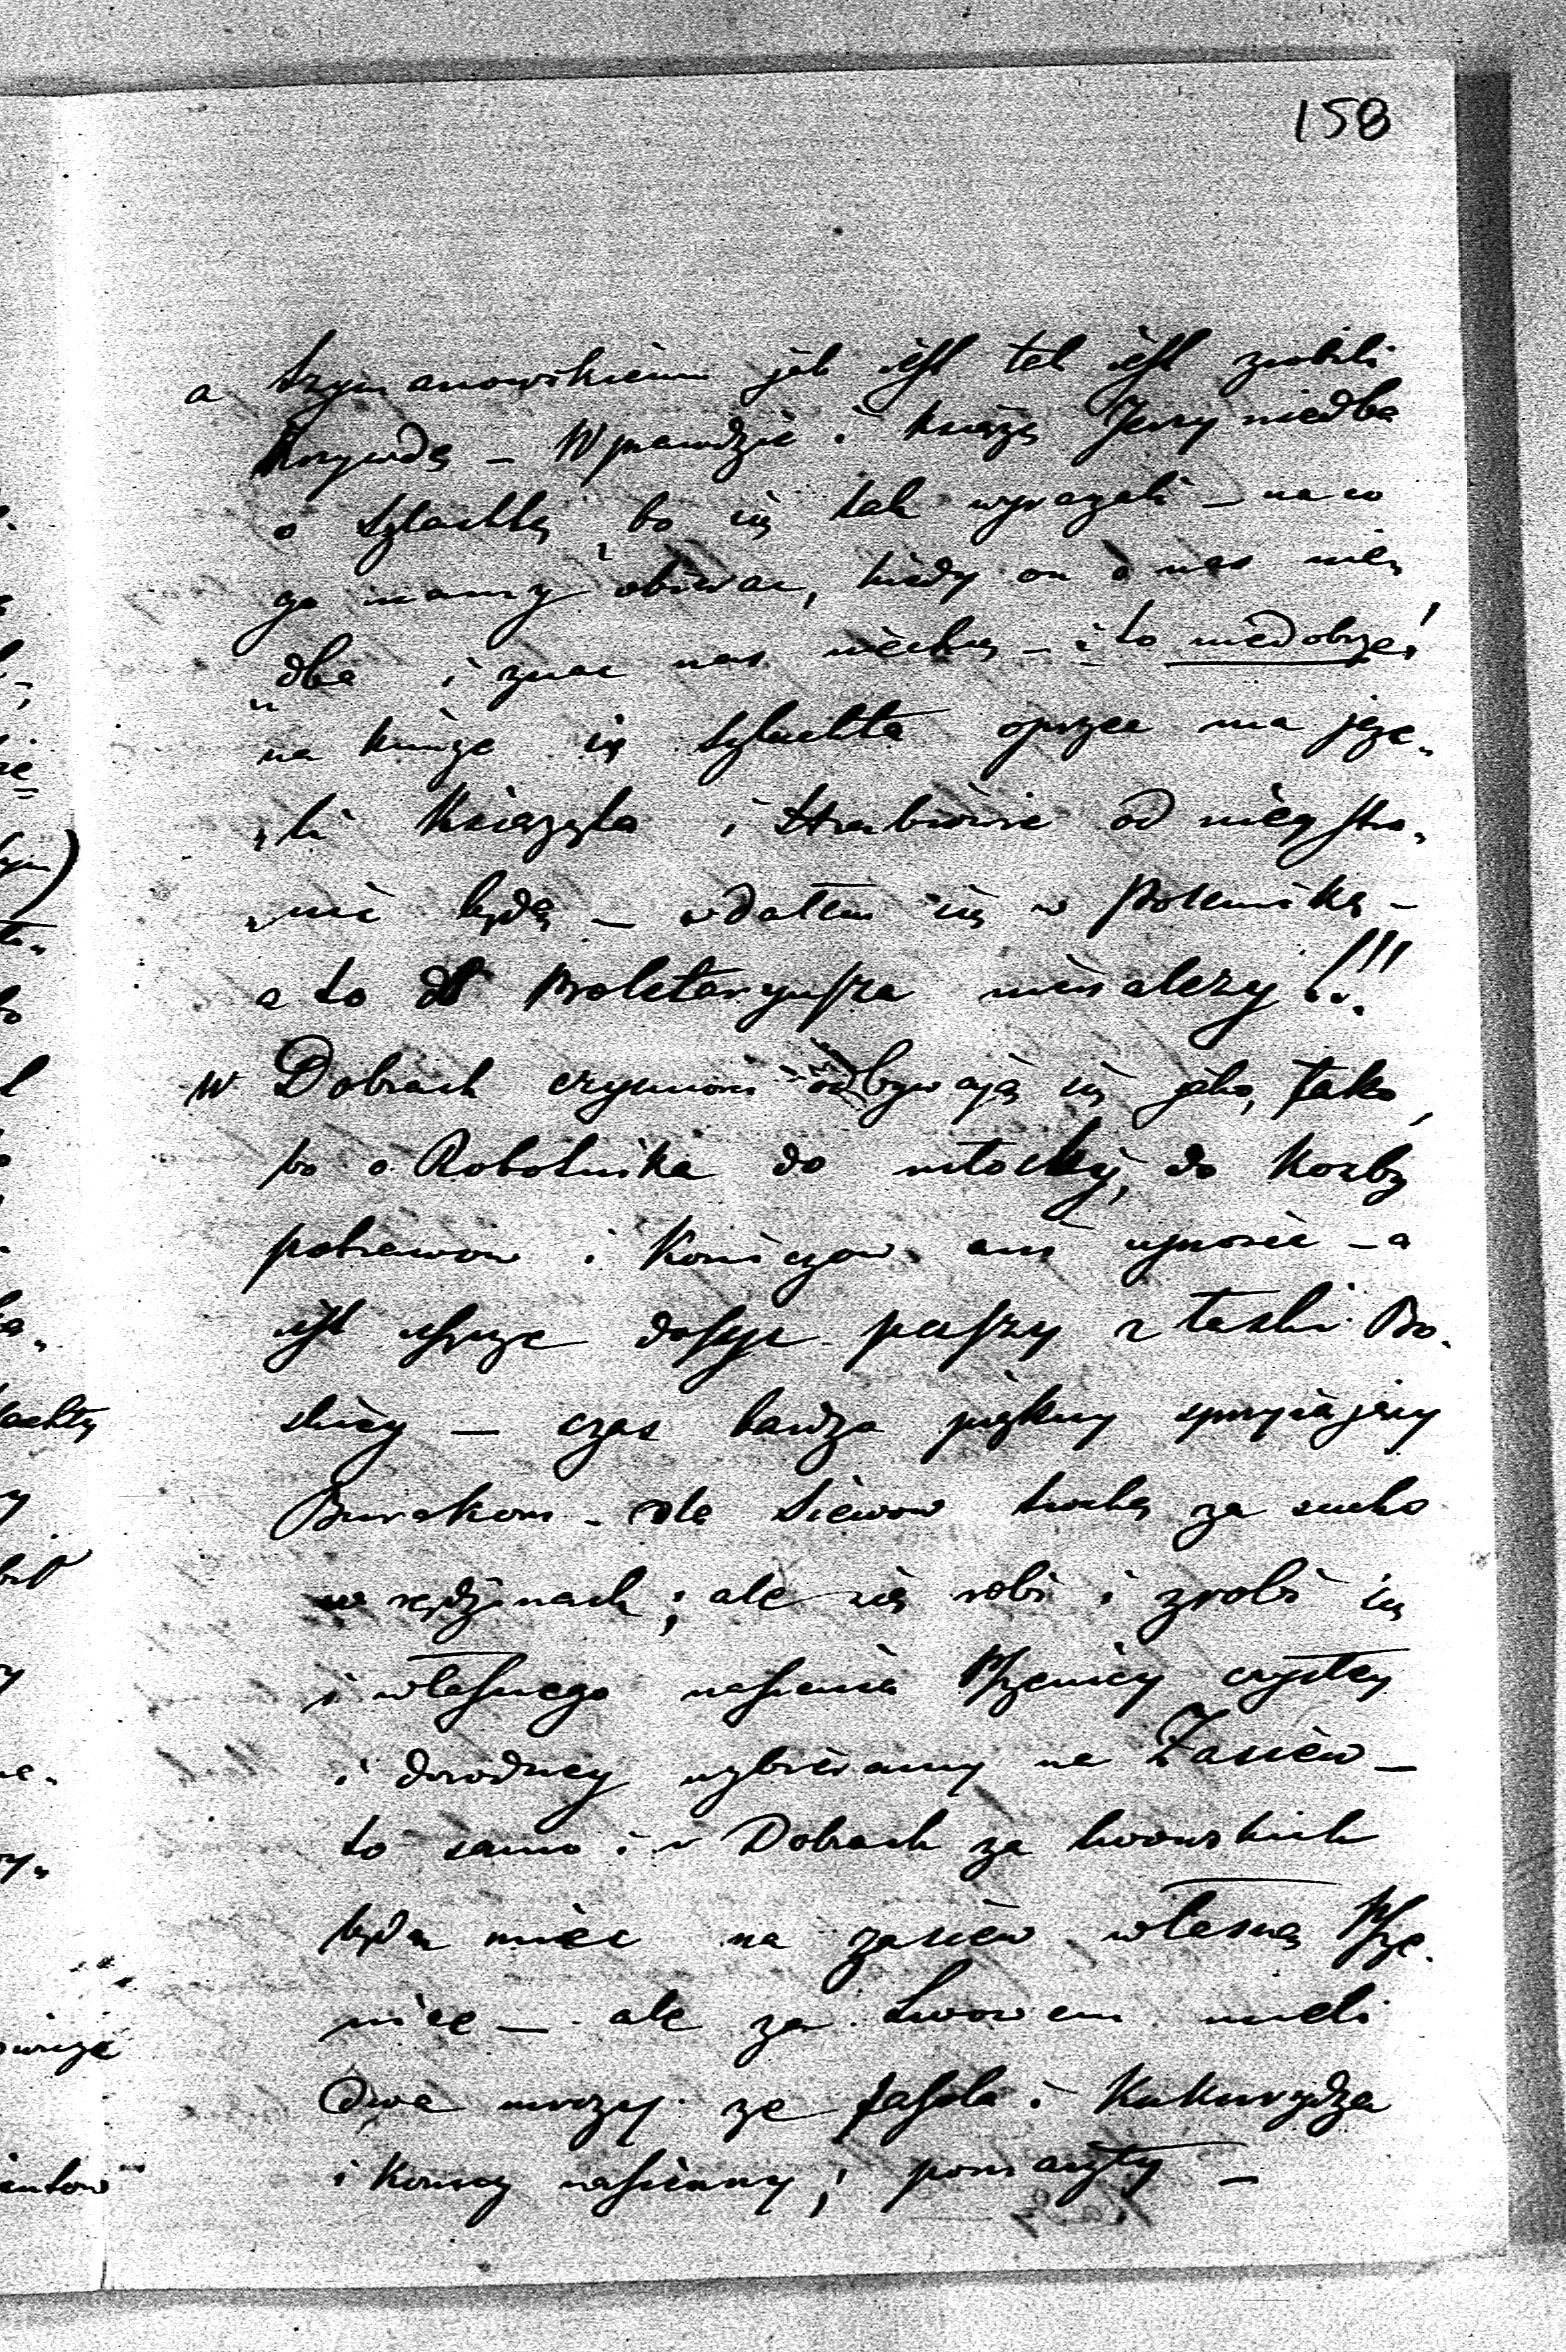 158
a Szymanowskiemu jak jest tak jest zrobili
Krzywdę – Wprawdzie i książe Jerzy niedba
o szlachtę, bo się tak wyrazali – na co
go mamy obierac, kiedy on o nas nie„
„dba i znac nas niechce – i to niedobrze!
na kimze się szlachta oprzec ma jeze„
„li Książęta i Hrabiowie od niej stro„
„nic będą – wdałem się w Polemikę –
a to do Proletaryusza nienalezy!!!
W Dobrach czynnosci odbywają się jako, tako,
bo o Robotnika do młocki, do Kozby
potrawow i Koniczow ani uprosic – a
jest jeszcze dosyc paszy z łaski Bo„
skiey – czas bardzo piękny sprzyiający
Burakom – dla Siewow trochę za sucho
w rędzinach; ale się robi i zrobi się
i własnego nasienia Pszenicy czystey
i dorodney wybieramy na Zasiew –
to samo i w Dobrach za Lwowskich
będą miec na zasiew własną Psze„
nicę – ale za Lwowem mieli
dwa mrozy ze fasola i Kukurydza
i Konicz nasienny; pomarzły –